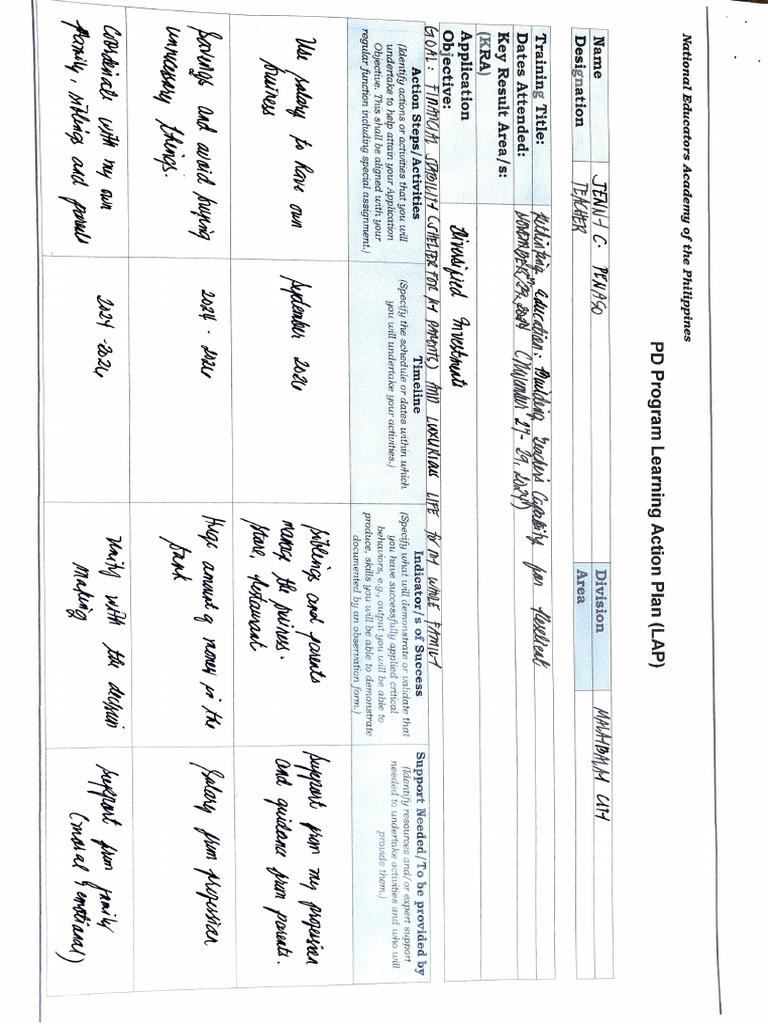 National Educators Academy of the Philippines
PD Program Learning Action Plan (LAP)
Name
JENNY C. PENASO
Division
MALAYBALAY CITY
Designation
TEACHER
Area
Training Title:
Rethinking Education: Building Teachers Capability for Resilient
Dates Attended:
NOVEMBER 27-29, 2024 (November 27-29, 2024)
Key Result Area/s:
(KRA)
Application
Objective:
Diversified Investments
GOAL: FINANCIAL STABILITY (SHELTER FOR MY PARENTS) AND LUXURIOUS LIFE FOR MY WHOLE FAMILY
Action Steps/Activities
(Identify actions or activities that you will
undertake to help attain your Application
Objective. This shall be aligned with your
regular function including special assignment.)
Timeline
(Specify the schedule or dates within which
you will undertake your activities.)
Indicator/s of Success
(Specify what will demonstrate or validate that
you have successfully applied critical
behaviors, e.g., output you will be able to
produce, skills you will be able to demonstrate
documented by an observation form.)
Support Needed/To be provided by
(Identify resources and/or expert support
needed to undertake activities and who will
provide them.)
Use salary to have own
business
September 2026
Siblings and parents
manage the business.
Store, Restaurant
Support from my profession
and guidance from parents.
Savings and avoid buying
unnecessary things.
2024 - 2026
Huge amount of money in the
bank
Salary from profession
Coordinate with my own
family, siblings and parents
2024 - 2026
Unity with the decision
making
Support from family
(moral & emotional)